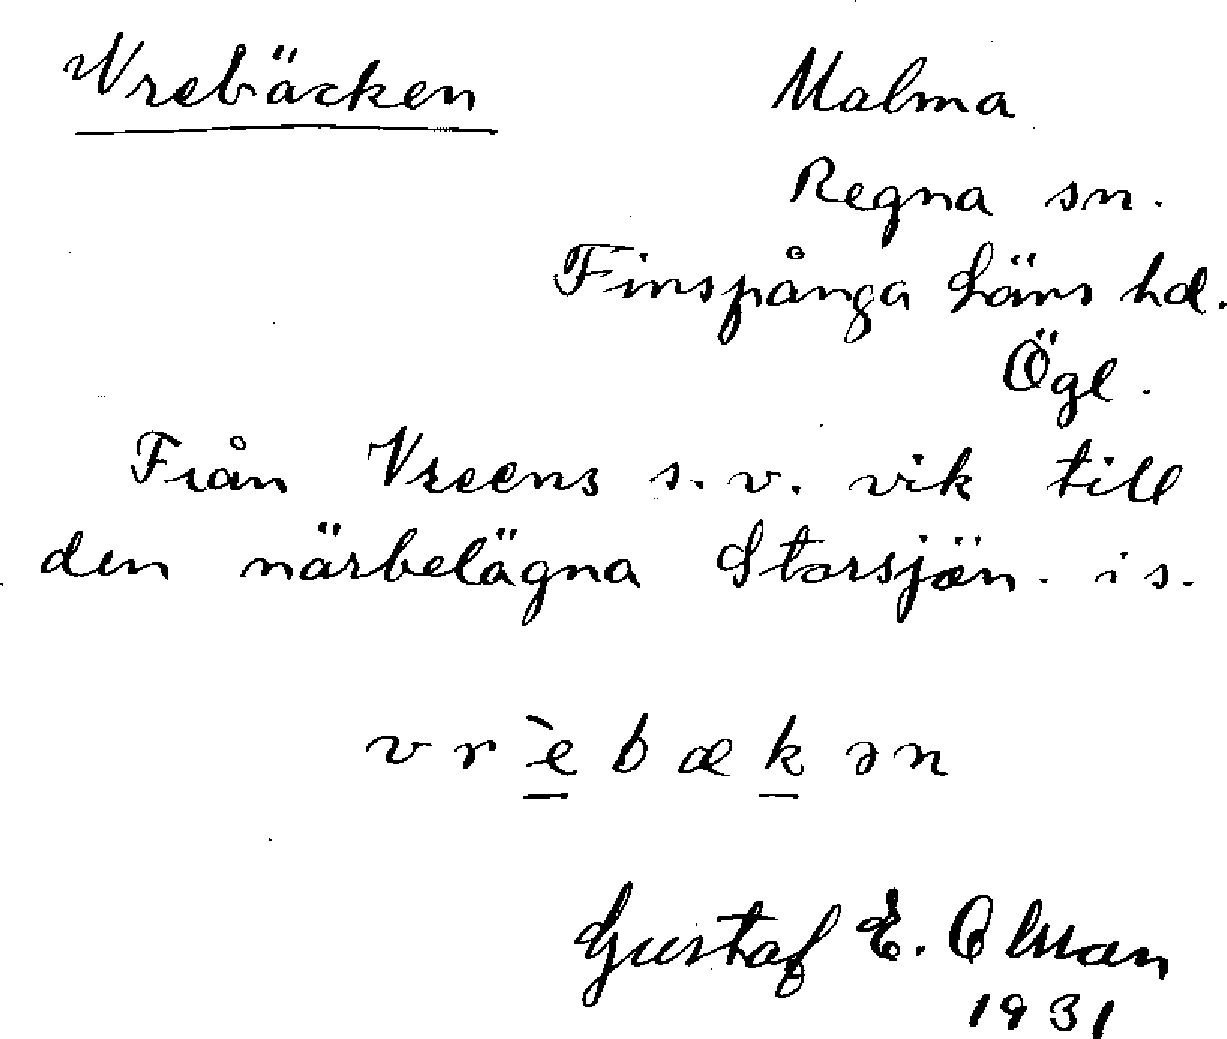 Vrebäcken
Malma
Regna sn.
Finspånga Läns hd.
Ögl.
Från Vreens s.v. vik till
den närbelägna Storsjön. is.
v r è b æ k ə n
Gustaf E. Olsson
1931